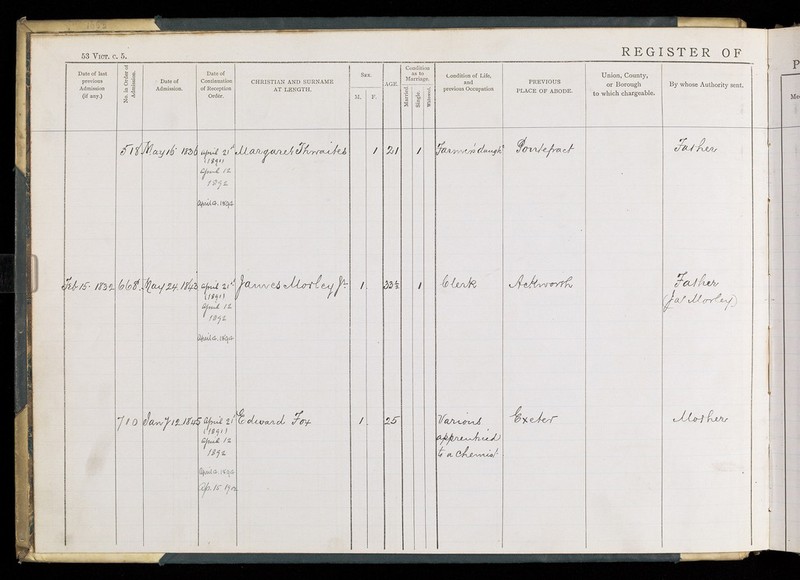 53 VICT. c. 5.
REGISTER OF
Date of last previous Admission (if any.)
No. in Order of Admission.
Date of Admission.
Date of Continuation of Reception Order.
CHRISTIAN AND SURNAME AT LENGTH.
Sex.
M.
F.
AGE
Condition as to Marriage.
Married.
Single.
Widowed.
Condition of Life, and previous Occupation
PREVIOUS PLACE OF ABODE.
Union, County, or Borough to which chargeable.
By whose Authority sent.
518 May 16 1836 April 21st Margaret Thwaites 1 21 1 Farmer's daught Pontefract Father
(1891)
April 12
1892
April 1892
Feb 15 1832 668 May 24 1843 April 21st James Morley Jr 1 33½ 1 Clerk Ackworth Father
(1891) (Jas Morley)
April 12
1892
April 1892
710 Jan 7 12 1845 April 21st Edward Fox 1 25 Various Exeter Mother
(1891)
April 12 apprenticed
1892 to a Chemist
April 1892
Ap. 15 1902